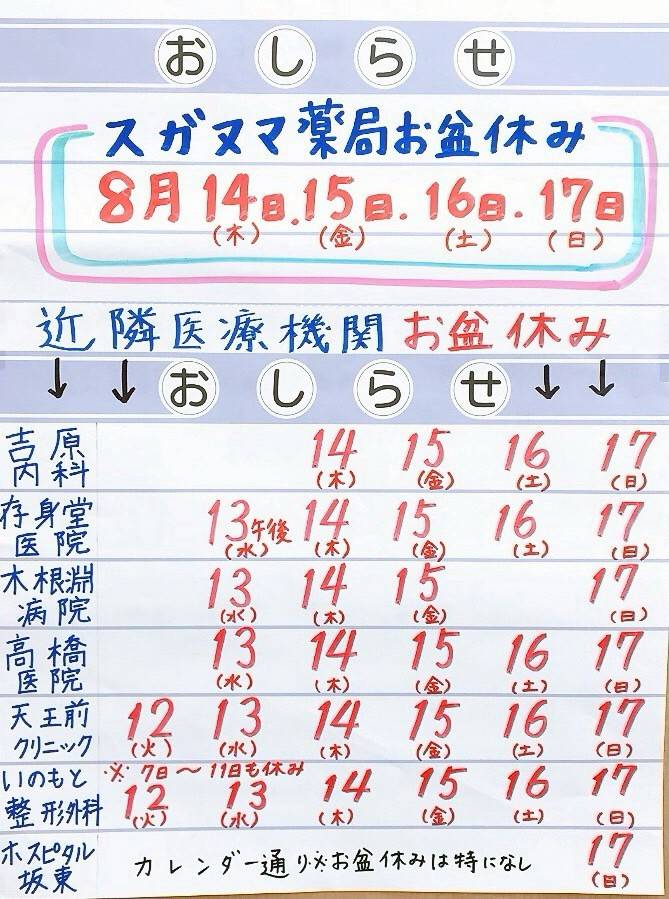 おしらせ
スガヌマ薬局お盆休み
8月14日.15日.16日.17日
(木) (金) (土) (日)
近隣医療機関お盆休み
↓ ↓ おしらせ ↓ ↓
吉原内科 14(木) 15(金) 16(土) 17(日)
存身堂医院 13午後(水) 14(木) 15(金) 16(土) 17(日)
木根淵病院 13(水) 14(木) 15(金) 17(日)
高橋医院 13(水) 14(木) 15(金) 16(土) 17(日)
天王前クリニック 12(火) 13(水) 14(木) 15(金) 16(土) 17(日)
※7日〜11日も休み
いのもと整形外科 12(火) 13(水) 14(木) 15(金) 16(土) 17(日)
ホスピタル坂東 カレンダー通り※お盆休みは特になし 17(日)